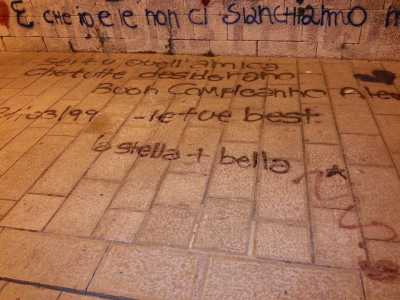 E CHE io E le non ci SiANCHiAMO
Sei tu quell'amica
che tutte desiderano
Buon Compleanno Ale
21/03/99 - le tue best
la stella + bella